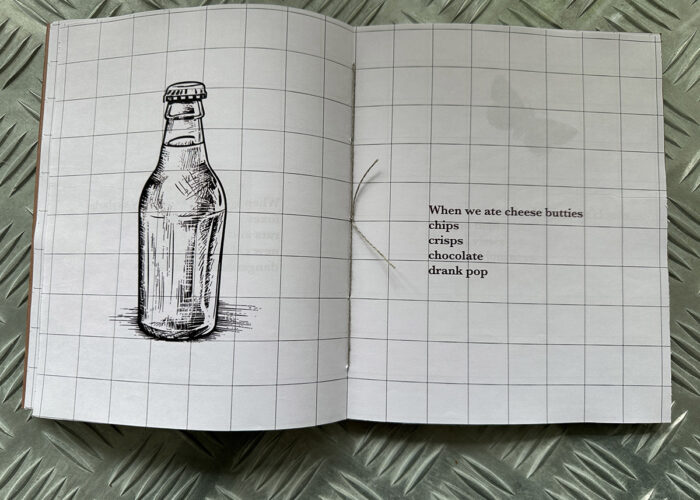 When we ate cheese butties
chips
crisps
chocolate
drank pop